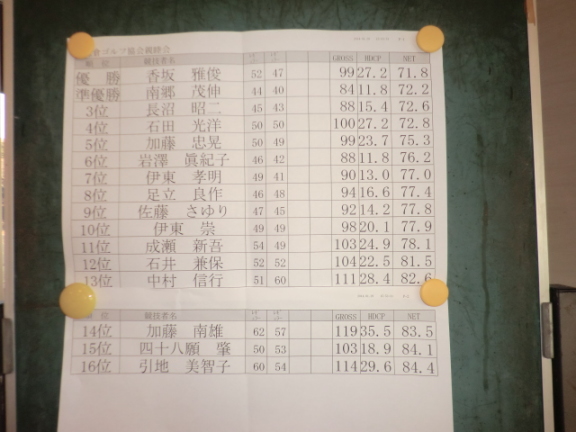 ゴルフ協会親睦会
順位 競技者名 GROSS HDCP NET
優勝 香坂 雅俊 52 47 99 27.2 71.8
準優勝 南郷 茂伸 44 40 84 11.8 72.2
3位 長沼 昭二 45 43 88 15.4 72.6
4位 石田 光洋 50 50 100 27.2 72.8
5位 加藤 忠晃 50 49 99 23.7 75.3
6位 岩澤 眞紀子 46 42 88 11.8 76.2
7位 伊東 孝明 49 41 90 13.0 77.0
8位 足立 良作 46 48 94 16.6 77.4
9位 佐藤 さゆり 47 45 92 14.2 77.8
10位 伊東 崇 49 49 98 20.1 77.9
11位 成瀬 新吾 54 49 103 24.9 78.1
12位 石井 兼保 52 52 104 22.5 81.5
13位 中村 信行 51 60 111 28.4 82.6
順位 競技者名 GROSS HDCP NET
14位 加藤 南雄 62 57 119 35.5 83.5
15位 四十八願 肇 50 53 103 18.9 84.1
16位 引地 美智子 60 54 114 29.6 84.4